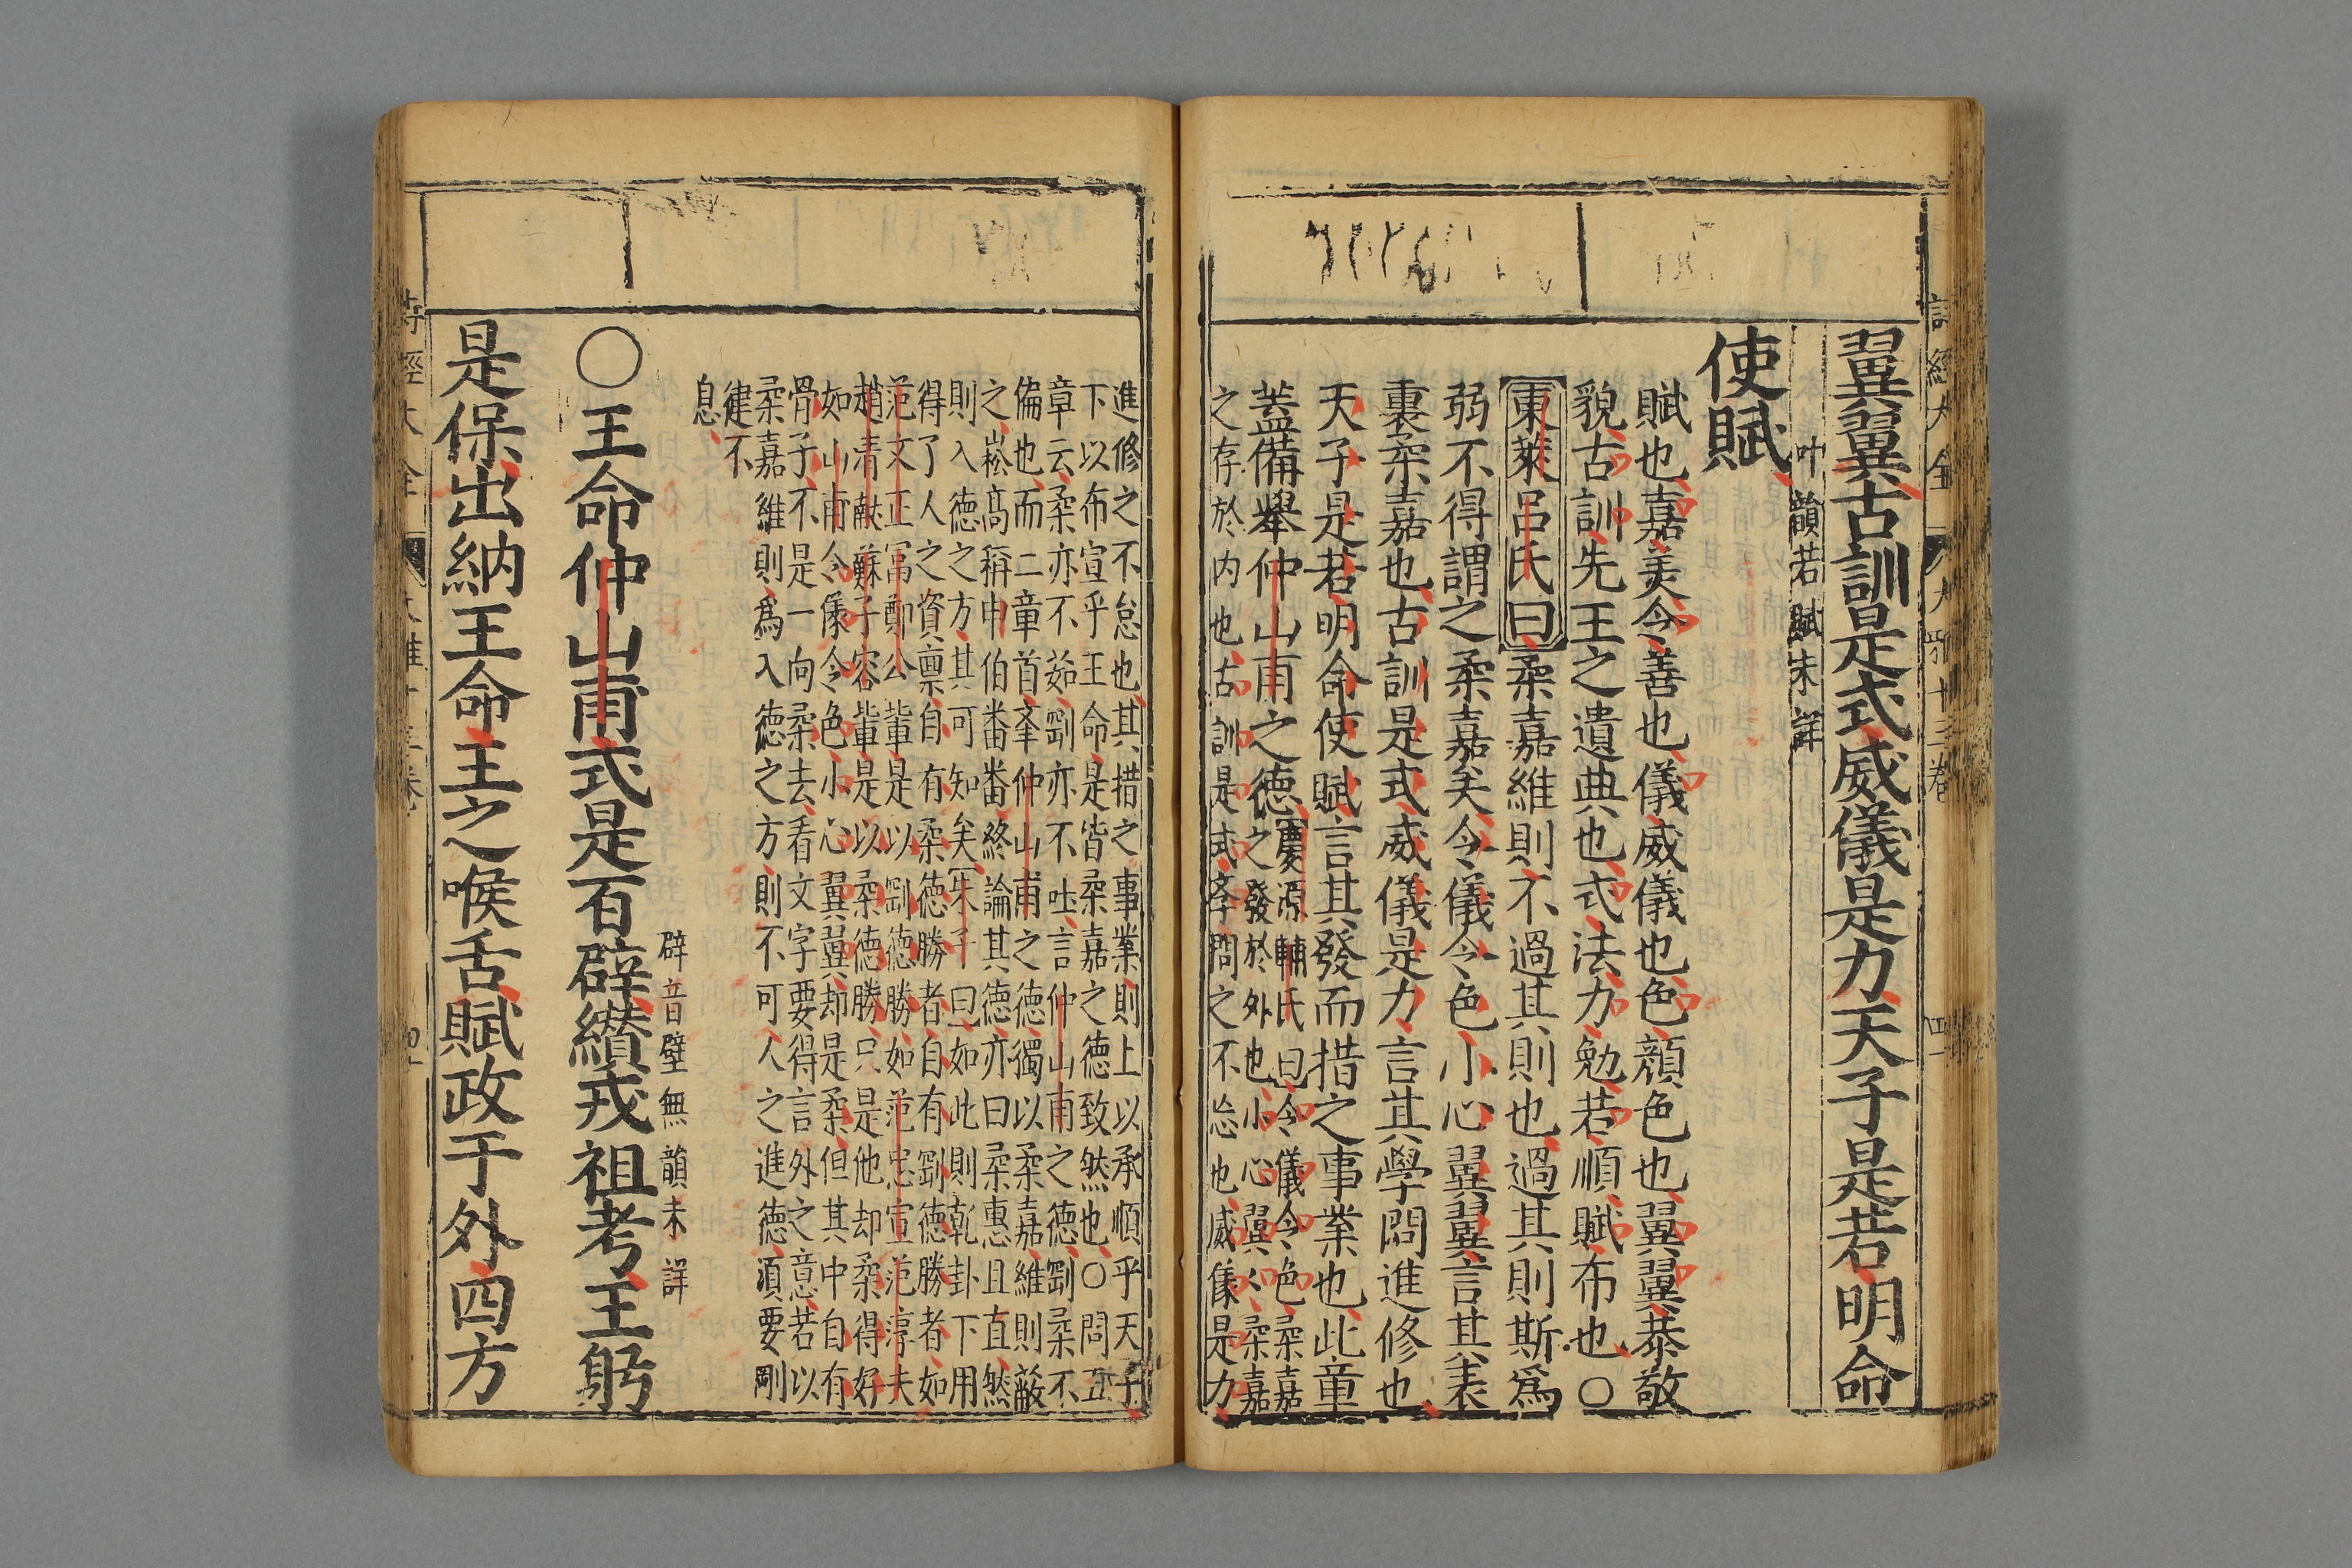 翼翼古訓是式威儀是力天子是若明命
使賦
叶韻若賦未詳
賦也嘉美令善也儀威儀也色顏色也翼翼恭敬
貌古訓先王之遺典也式法力勉若順賦布也○
東萊呂氏曰柔嘉維則不過其則也過其則斯爲
弱不得謂之柔嘉矣令儀令色小心翼翼言其表
裏柔嘉也古訓是式威儀是力言其學問進修也
天子是若明命使賦言其發而措之事業也此章
蓋備舉仲山甫之德
慶源輔氏曰令儀令色柔嘉
之發於外也小心翼〻柔嘉
之存於内也古訓是式斈問之不怠也威儀是力
進修之不怠也其措之事業則上以承順乎天子
下以布宣乎王命是皆柔嘉之德致然也○問五
章云柔亦不茹剛亦不吐言仲山甫之德剛柔不
偏也而二章首䇯仲山甫之德獨以柔嘉維則蔽
之崧高稱申伯番番終論其德亦曰柔惠且直然
則入德之方其可知矣朱子曰如此則乾卦下用
得了人之資稟自有柔德勝者自有剛德勝者如
范文正冨鄭公輩是以剛德勝如范忠宣范淳夫
趙清獻蘇子容輩是以柔德勝只是他却柔得好
如山甫令儀令色小心翼翼却是柔但其中自有
骨子不是一向柔去看文字要得言外之意若以
柔嘉維則爲入德之方則不可人之進德須要剛
健不
息
○王命仲山甫式是百辟纘戎祖考王躬
辟音璧無韻未詳
是保出納王命王之喉舌賦政于外四方